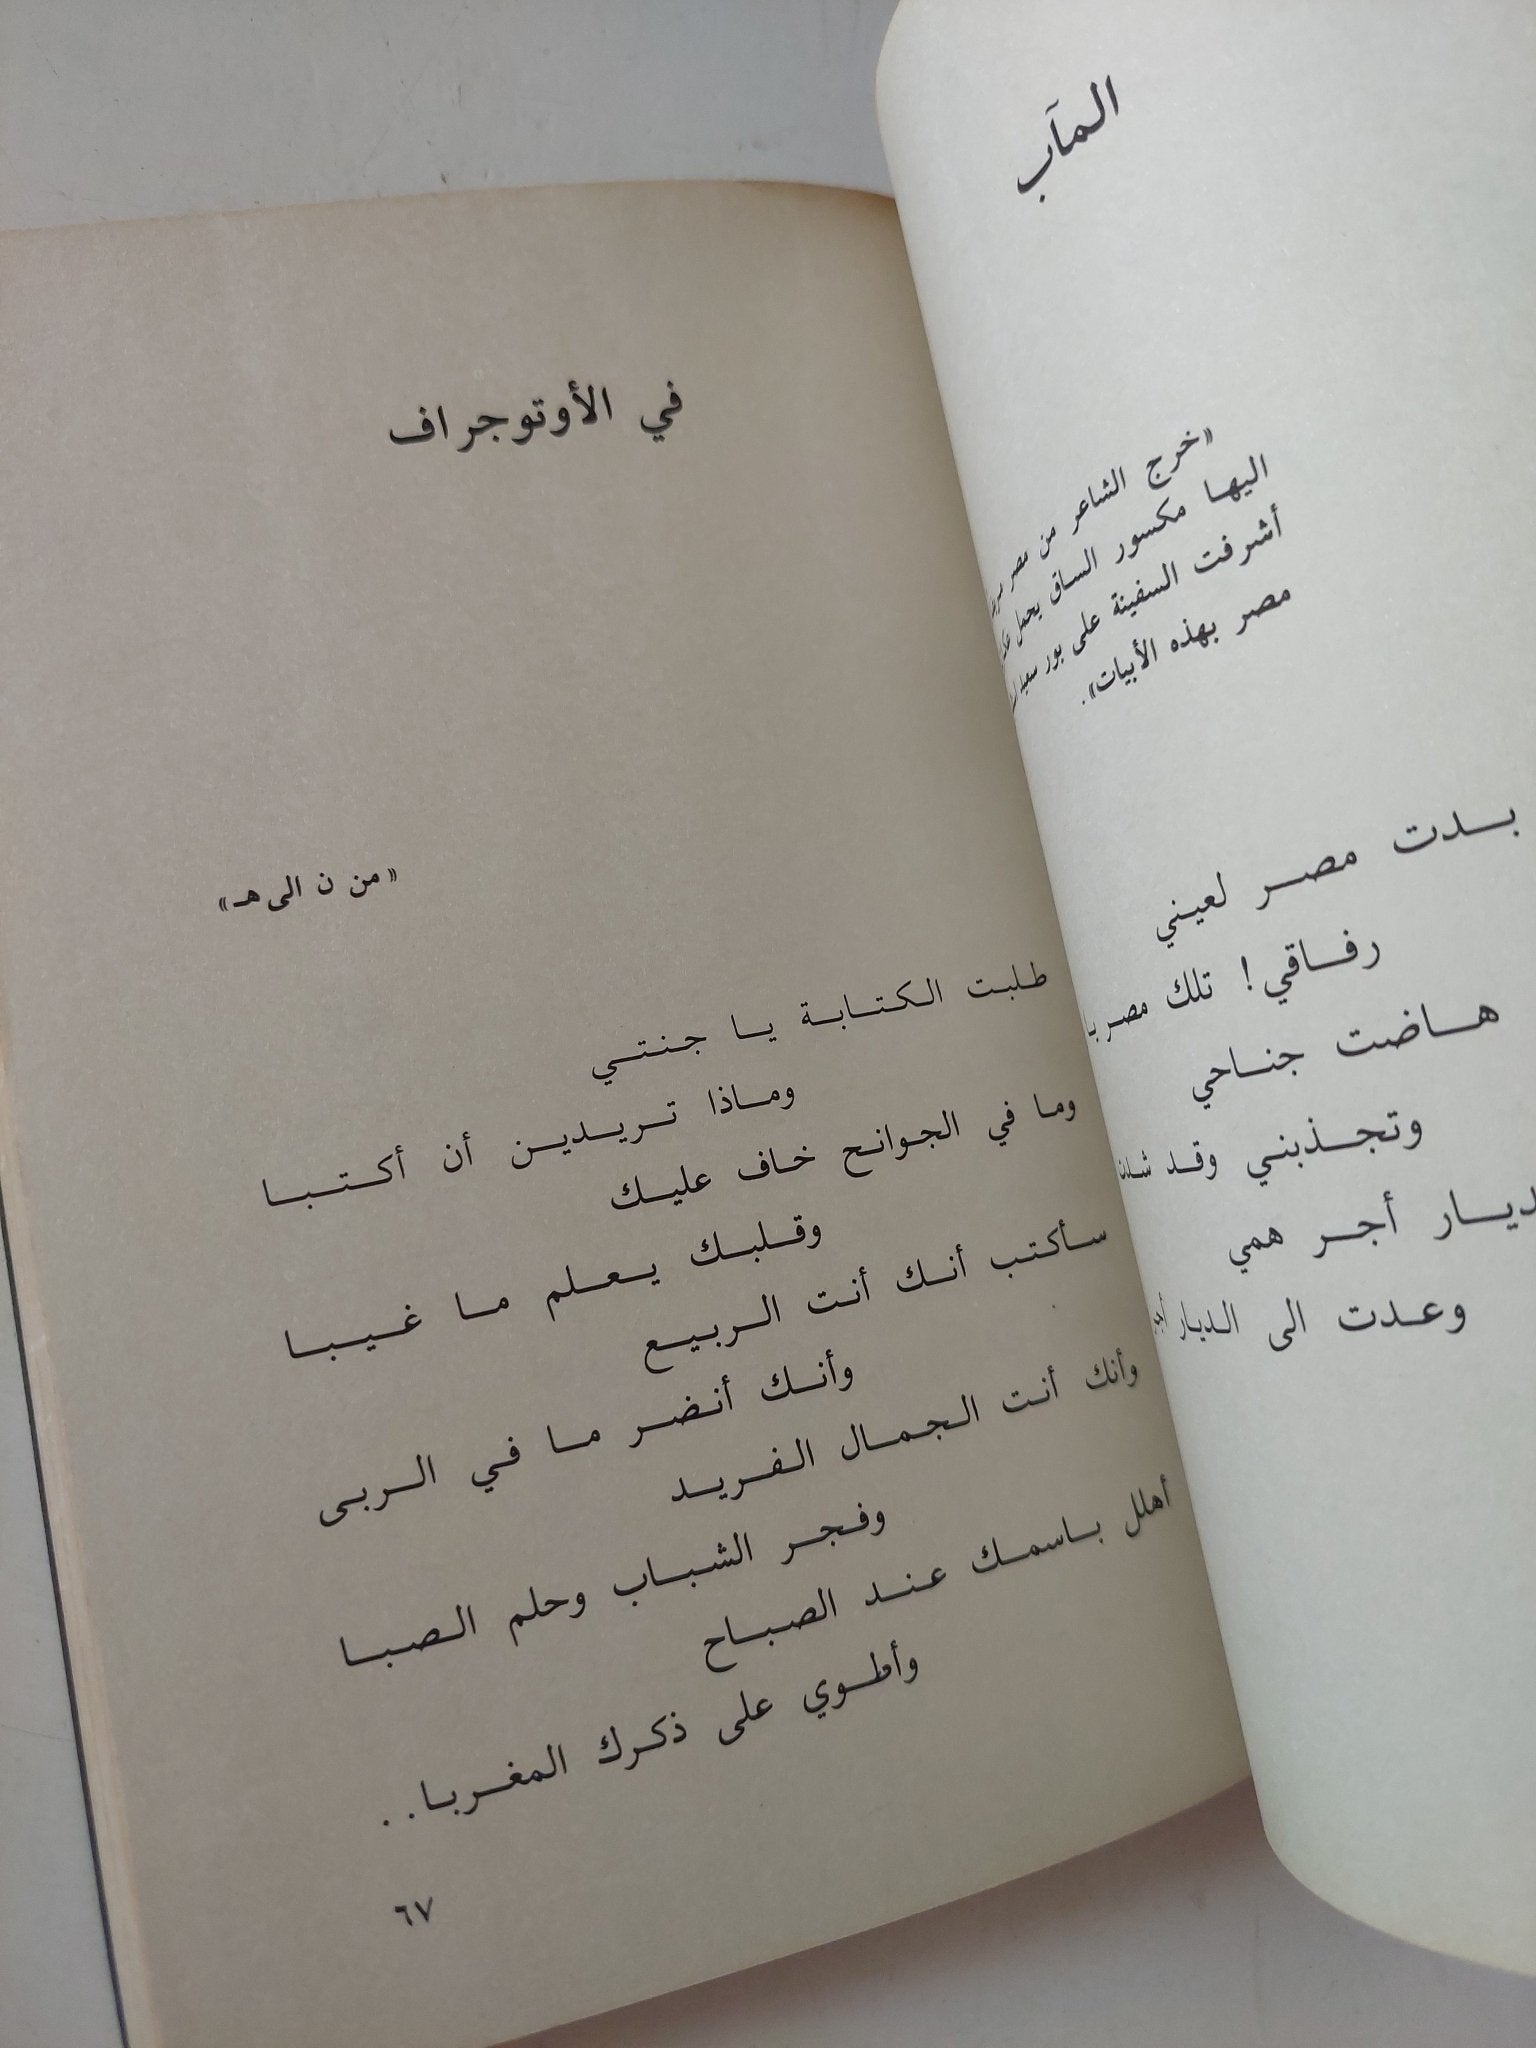 المآب
«خرج الشاعر من مصر
اليها مكسور الساق يحمل
أشرفت السفينة على بور سعيد
مصر بهذه الأبيات».
بـدت مصر لعيني
رفاقي! تلك مصر
هاضت جناحي
وتجذبني وقد
ديار أجر همي
وعدت الى الديار
في الأوتوجراف
«من ن الى هـ»
طلبت الكتابة يا جنتي
وماذا تريدين أن أكتبا
وما في الجوانح خاف عليك
وقلبك يعلم ما غيبا
سأكتب أنك أنت الربيع
وأنك أنضر ما في الربى
وأنك أنت الجمال الفريد
وفجر الشباب وحلم الصبا
أهلل باسمك عند الصباح
وأطوي على ذكرك المغربا..
٦٧